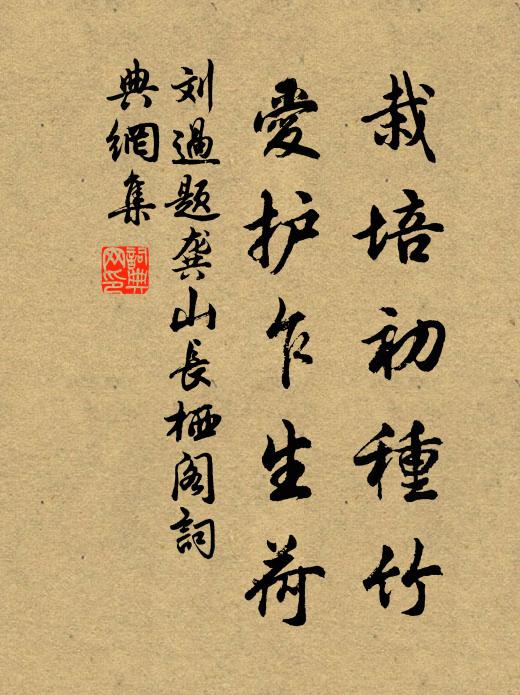 栽培初種竹
愛护乍生荷
刘過题龚山長栖阁詞
典網集
詞典
网印